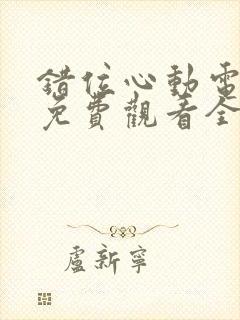 錯位心動電
免費觀看全
盧新寧